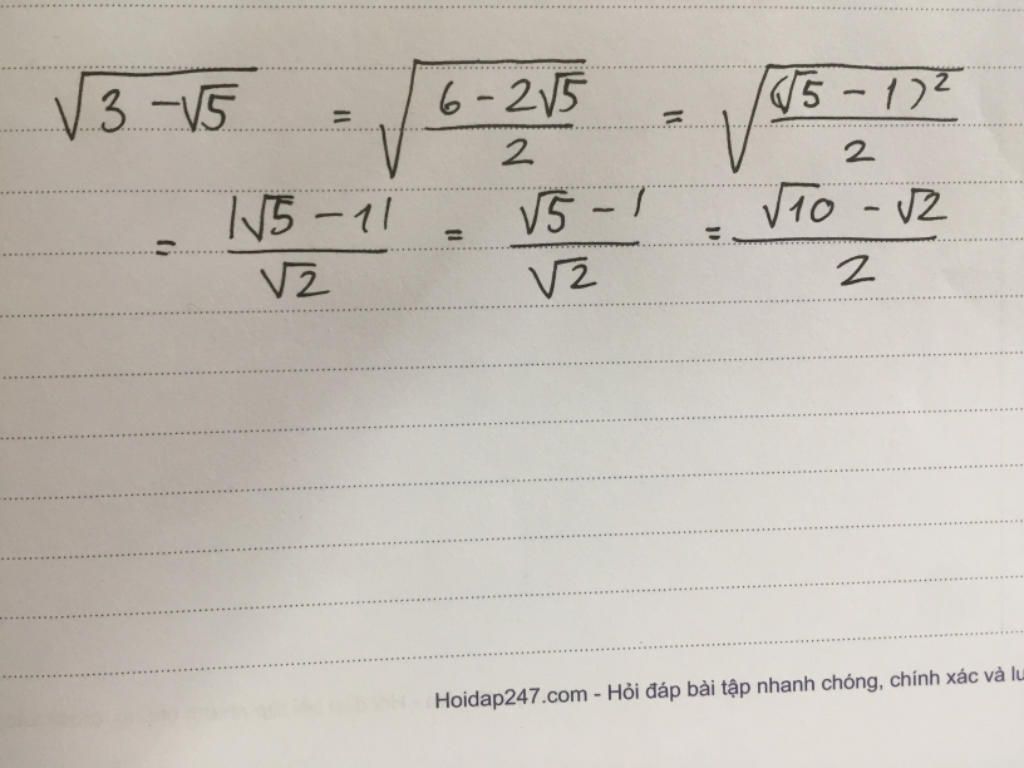 √(3 - √5) = √((6 - 2√5)/2) = √((√5 - 1)²/2)
= |√5 - 1|/√2 = (√5 - 1)/√2 = (√10 - √2)/2
Hoidap247.com - Hỏi đáp bài tập nhanh chóng, chính xác và